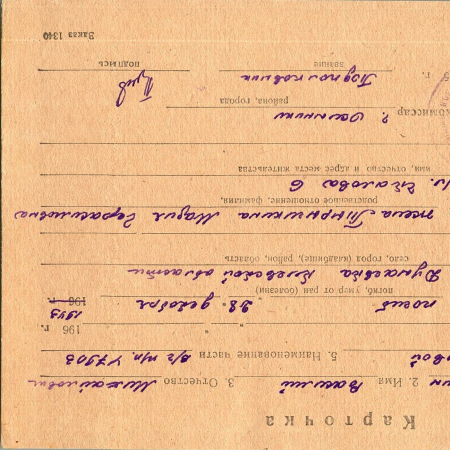 Карточка
2. Имя Василий 3. Отчество Михайлович
5. Наименование части в/ч п/п 47903
196 г.
погиб 28 декабря 1943
196 г.
погиб, умер от ран (болезни)
Дунаевка Киевской области
село, город (кладбище), район, область
жена Тынышкина Мария Герасимовна
родственное отношение, фамилия,
Чкалова 6
имя, отчество и адрес места жительства
комиссар г.
района, города
Подполковник
звание подпись
г.
Заказ 1340